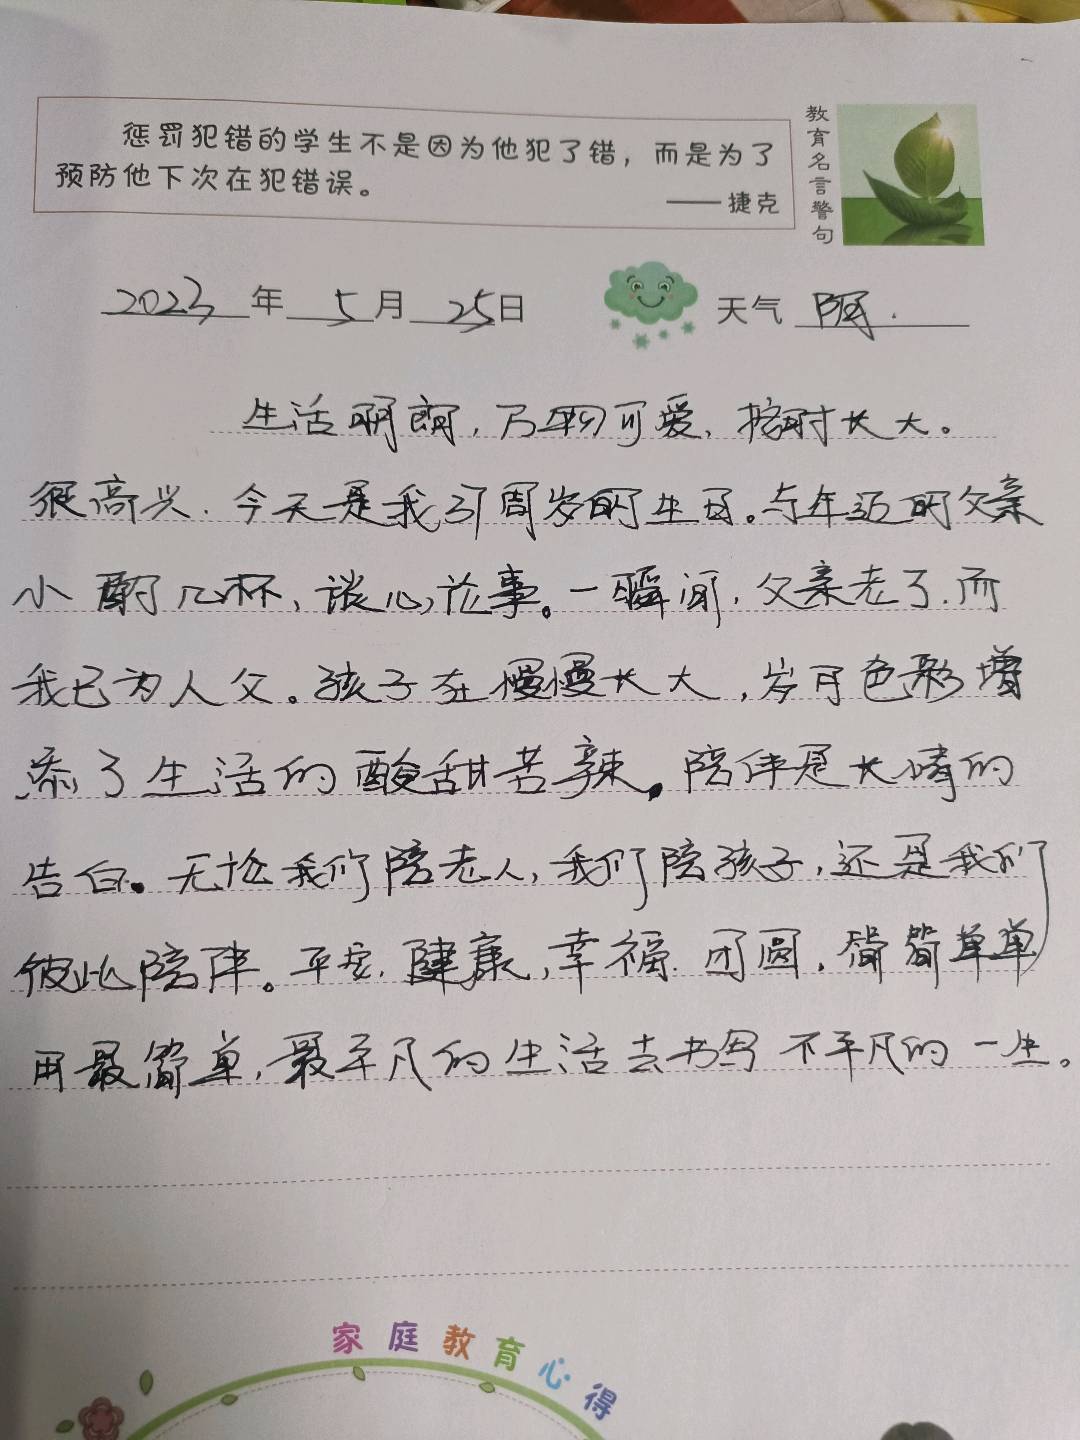 惩罚犯错的学生不是因为他犯了错，而是为了
预防他下次在犯错误。
——捷克
教育名言警句
2023年5月25日
天气 阴.
生活明朗，万物可爱，按时长大。
很高兴，今天是我37周岁的生日。与年迈的父亲
小酌几杯，谈心，论事。一瞬间，父亲老了，而
我已为人父。孩子在慢慢长大，岁月色彩增
添了生活的酸甜苦辣。陪伴是长情的
告白。无论我们陪老人，我们陪孩子，还是我们
彼此陪伴。平安，健康，幸福，团圆，简简单单
用最简单，最平凡的生活去书写不平凡的一生。
家庭教育心得